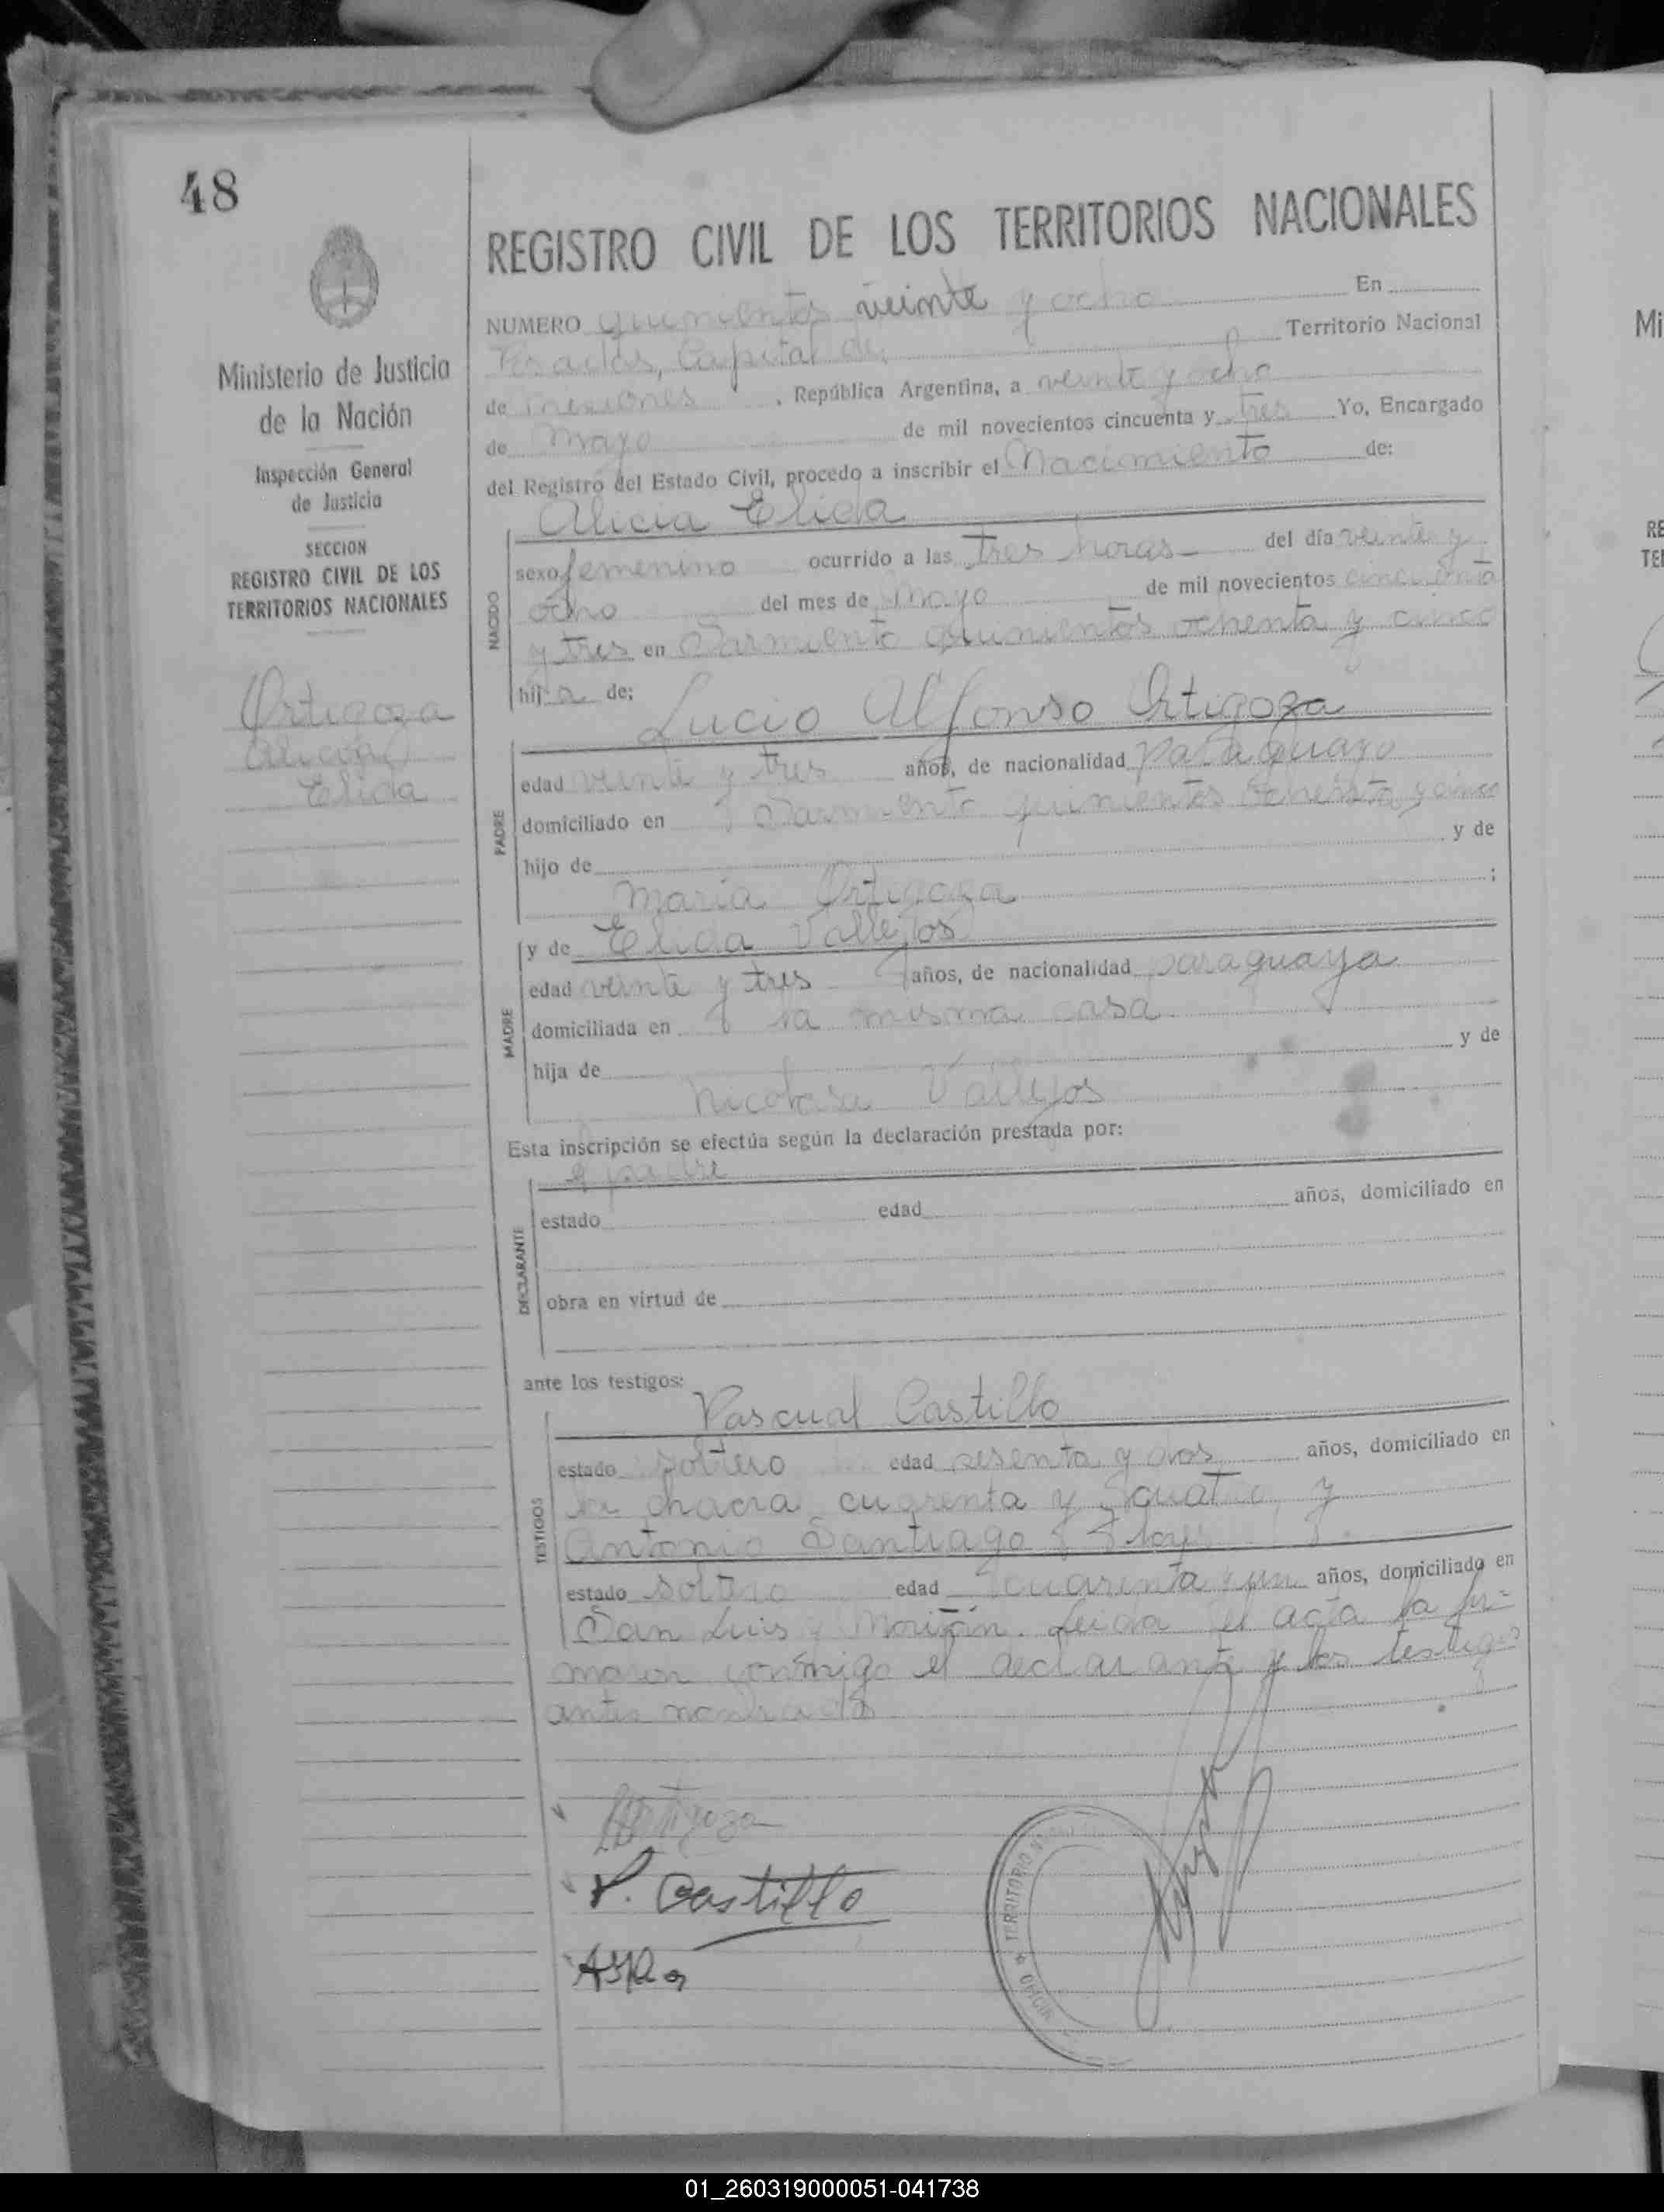 48
REGISTRO CIVIL DE LOS TERRITORIOS NACIONALES
Ministerio de Justicia
de la Nación
Inspección General
de Justicia
SECCION
REGISTRO CIVIL DE LOS
TERRITORIOS NACIONALES
Ortigoza
Alicia
Elida
NUMERO quinientos veinte y ocho En
Posadas, Capital del Territorio Nacional
de Misiones, República Argentina, a veinte y ocho
de Mayo de mil novecientos cincuenta y tres Yo, Encargado
del Registro del Estado Civil, procedo a inscribir el Nacimiento de:
Alicia Elida
NACIDO
sexo femenino ocurrido a las tres horas del día veinte y
ocho del mes de Mayo de mil novecientos cincuenta
y tres en Sarmiento quinientos ochenta y cinco
hija de:
Lucio Alfonso Ortigoza
PADRE
edad veinte y tres años, de nacionalidad paraguayo
domiciliado en Sarmiento quinientos ochenta y cinco
hijo de y de
Maria Ortigoza ;
MADRE
y de Elida Vallejos
edad veinte y tres años, de nacionalidad paraguaya
domiciliada en la misma casa
hija de y de
Nicolasa Vallejos
Esta inscripción se efectúa según la declaración prestada por:
el padre
DECLARANTE
estado edad años, domiciliado en
obra en virtud de
ante los testigos:
Pascual Castillo
TESTIGOS
estado soltero edad sesenta y dos años, domiciliado en
la chacra cuarenta y cuatro y
Antonio Santiago
estado soltero edad cuarenta y un años, domiciliado en
San Luis y Leida el acta la fir=
maron conmigo el declarante y los testigos
antes nombrados
Ortigoza
P. Castillo
TERRITORIO
01_260319000051-041738
Mi
RE
TE